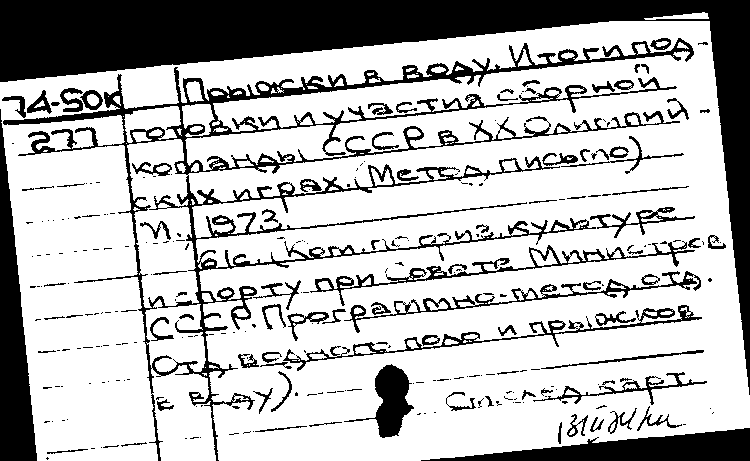 74-50к Прыжки в воду. Итоги под-
277 готовки и участия сборной
команды СССР в XX Олимпий-
ских играх. (Метод. письмо).
М., 1973.
61с. (Ком. по физ. культуре
и спорту при Совете Министров
СССР. Программно-метод. отд.
Отд. водного поло и прыжков
в воду).
См. след. карт.